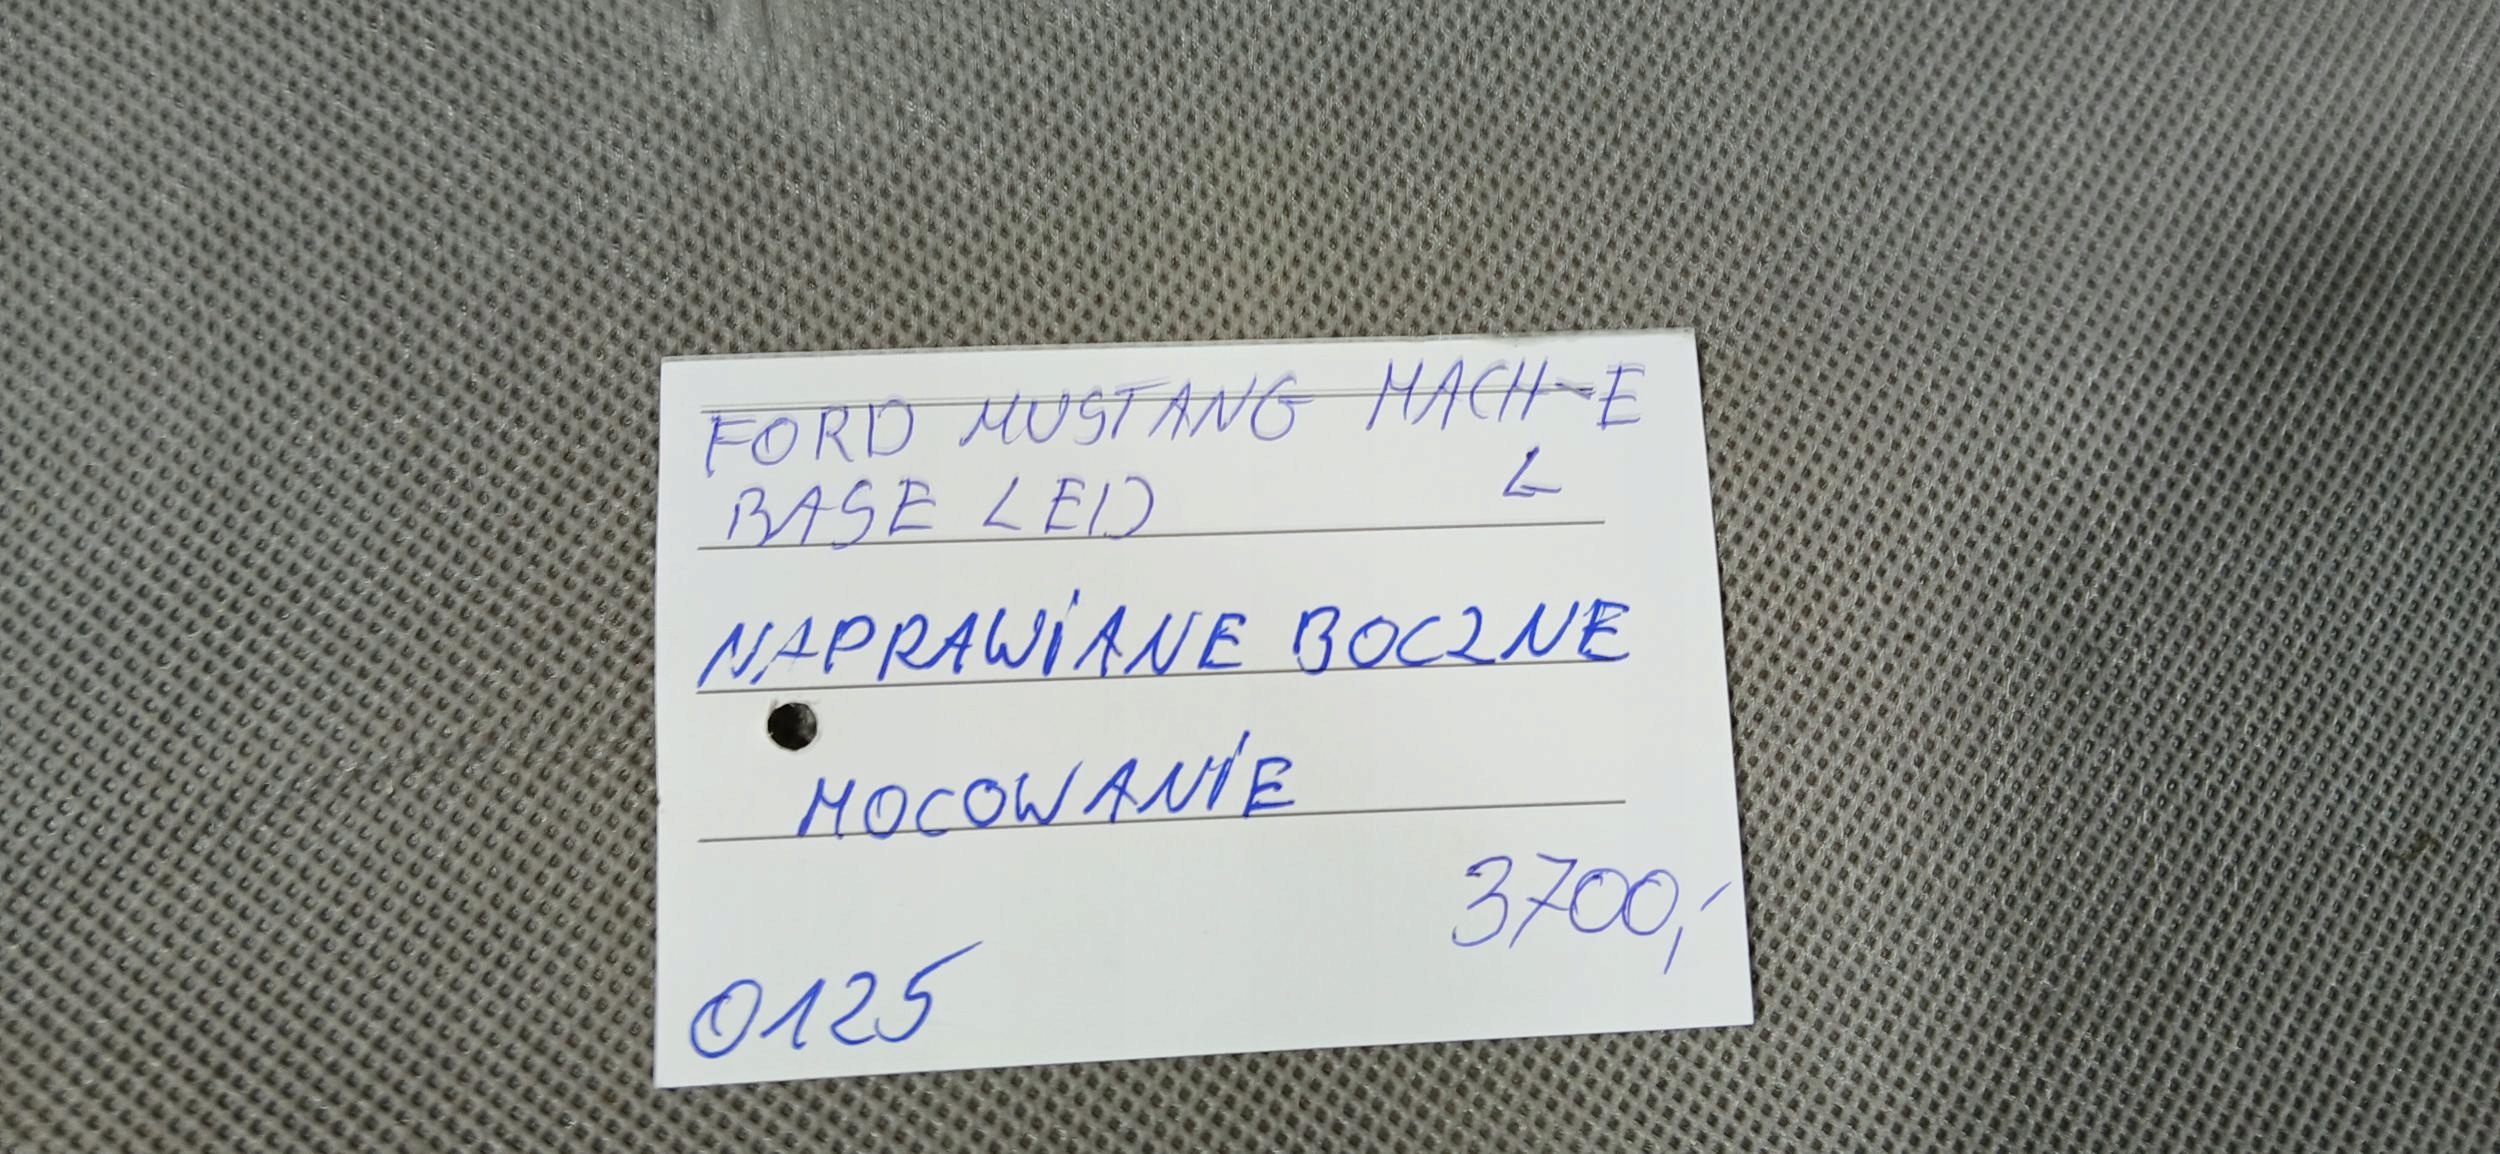 FORD MUSTANG MACH-E
BASE LED L
NAPRAWiANE BOCZNE
MOCOWANiE
3700,-
0125